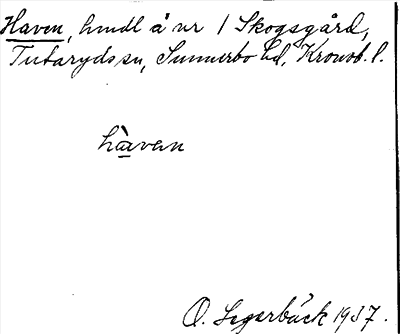 Haven, hmdl å nr 1 Skogsgård,
Tutaryds sn, Sunnerbo hd, Kronob. l.
hàvan
O. Segerbäck 1937.